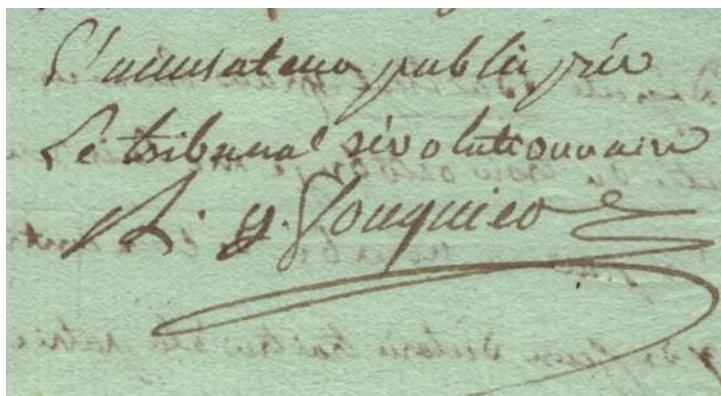 L'accusateur public près
Le tribunal révolutionnaire
A. q. Fouquier